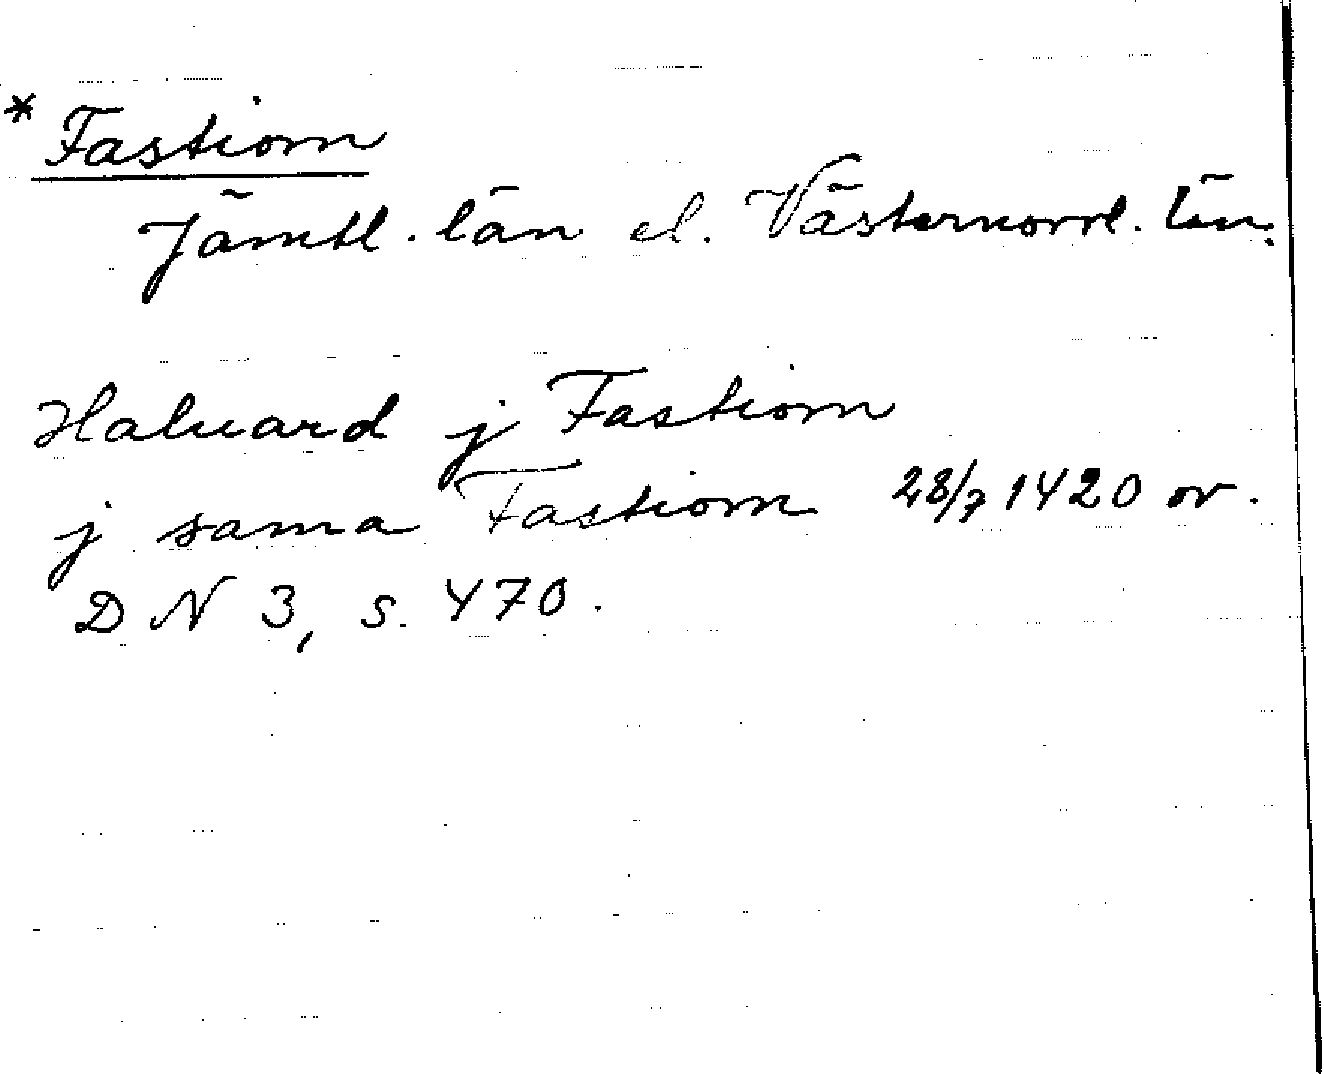 * Fastiom
Jämtl. län el. Västernorrl. län.
Haluard j Fastiom
j sama Fastiom 28/7 1420 or.
DN 3, s. 470.